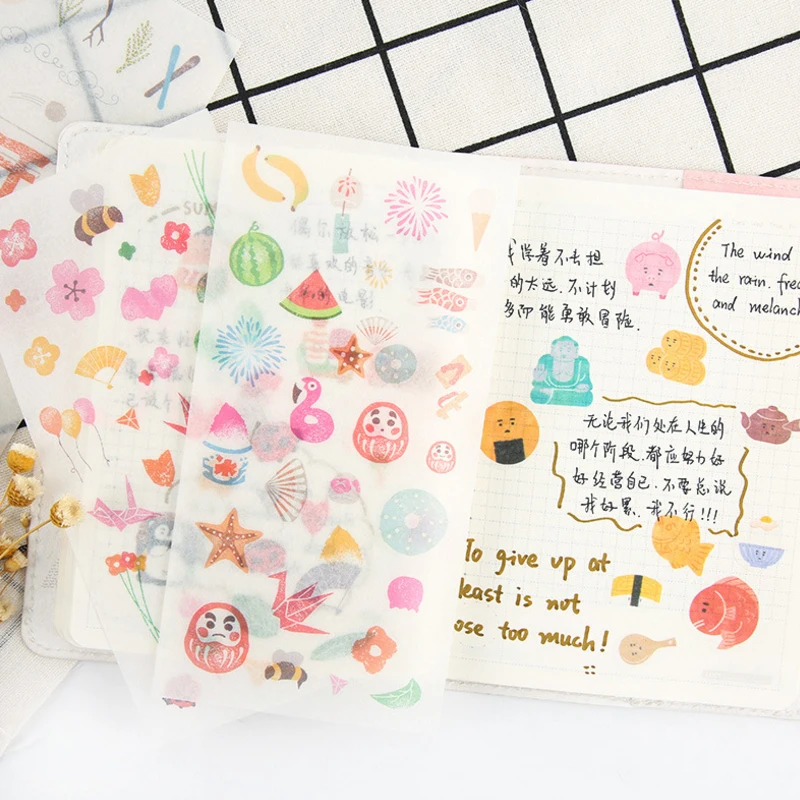 SUM
偶尔放松
喜欢的音
我学着不去担
的太远.不计划
多即能勇敢冒险.
The wind
the rain. free
and melanch
无论我们处在人生的
哪个阶段.都应努力好
好经营自己.不要总说
我好累.我不行!!!
To give up at
least is not
ose too much!